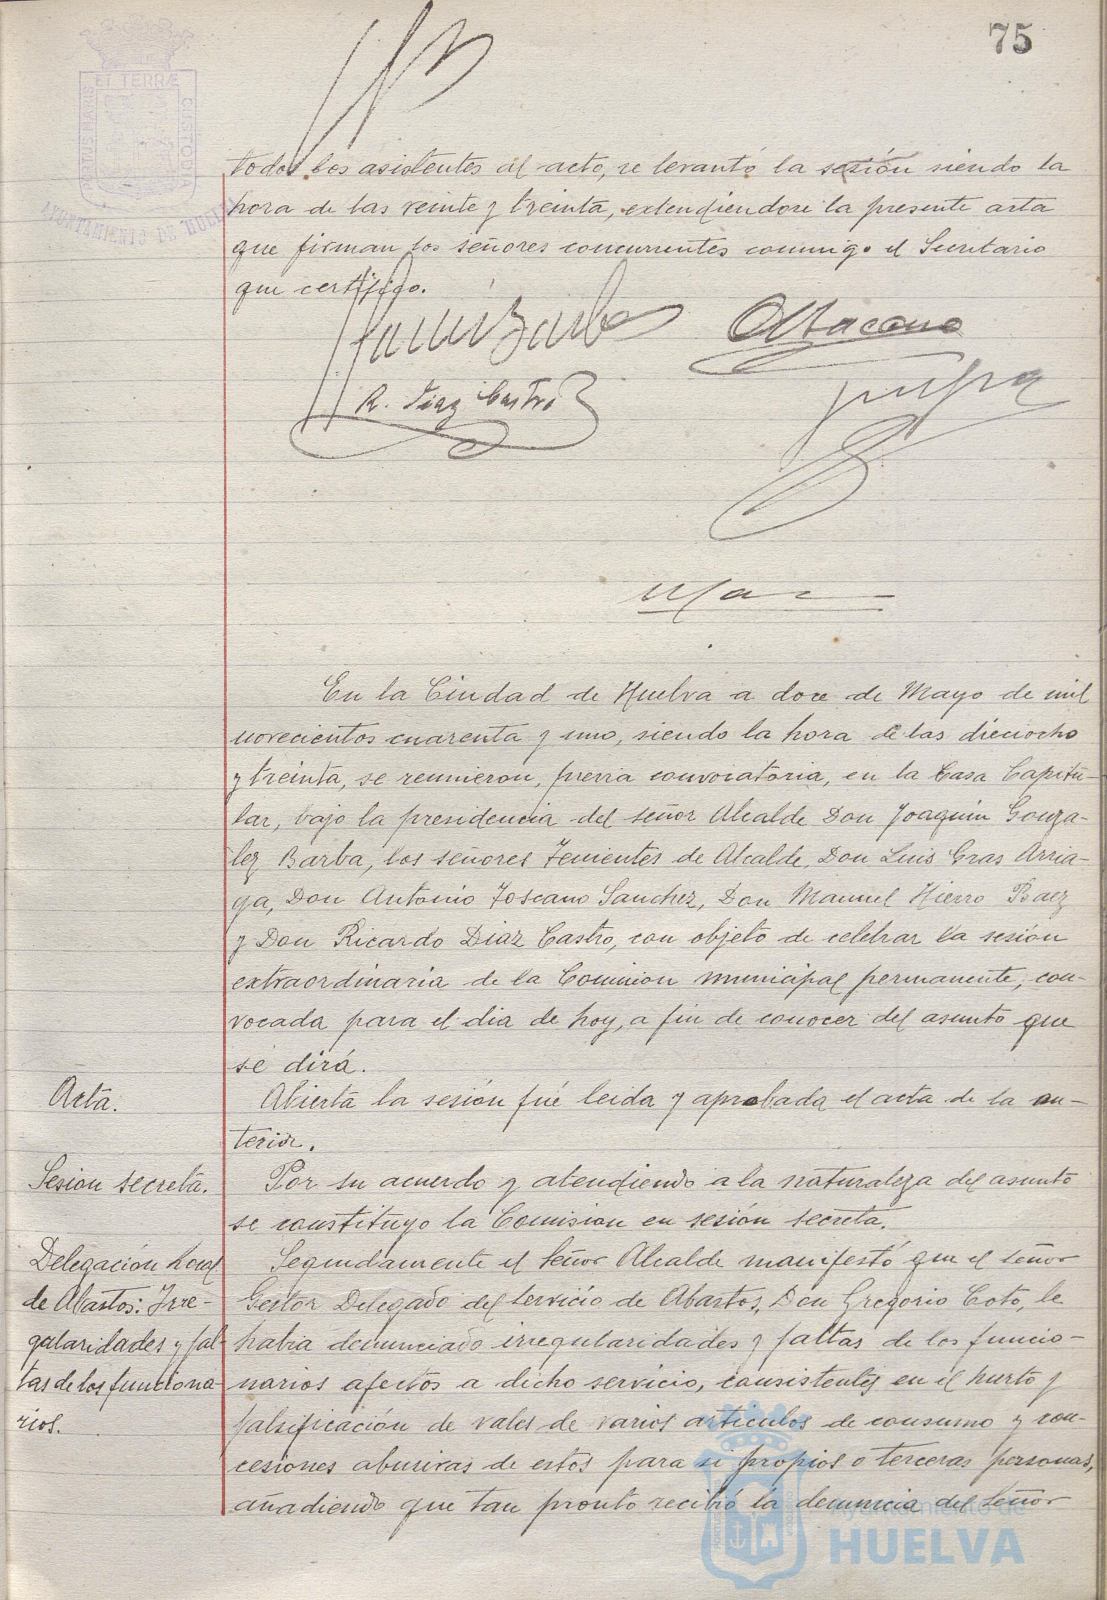 75
PORTUS MARIS ET TERRÆ CUSTODIA
AYUNTAMIENTO DE HUELVA
todos los asistentes al acto, se levantó la sesión siendo la
hora de las veinte y treinta, extendiendose la presente acta
que firman los señores concurrentes conmigo el Secretario
que certifico.
R. Diaz Castro
En la Ciudad de Huelva a doce de Mayo de mil
novecientos cuarenta y uno, siendo la hora de las dieciocho
y treinta, se reunieron, previa convocatoria, en la Casa Capitu-
lar, bajo la presidencia del señor Alcalde Don Joaquin Gonza-
lez Barba, los señores Tenientes de Alcalde, Don Luis Gras Arria-
ga, Don Antonio Toscano Sanchez, Don Manuel Hierro Baez
y Don Ricardo Diaz Castro, con objeto de celebrar la sesión
extraordinaria de la Comision municipal permanente, con-
vocada para el dia de hoy, a fin de conocer del asunto que
se dirá.
Acta.
Abierta la sesión fué leida y aprobada el acta de la an-
terior.
Sesion secreta.
Por su acuerdo y atendiendo a la naturaleza del asunto
se constituyo la Comision en sesión secreta.
Delegación local
de Abastos: Irre-
gularidades y fal-
tas de los funciona-
rios.
Segundamente el Señor Alcalde manifestó que el señor
Gestor Delegado del Servicio de Abastos, Don Gregorio Coto, le
habia denunciado irregularidades y faltas de los funcio-
narios afectos a dicho servicio, consistentes en el hurto y
falsificación de vales de varios artículos de consumo y con-
cesiones abusivas de estos para si propios o terceras personas,
añadiendo que tan pronto recibió la denuncia del Señor
Ayuntamiento de
HUELVA